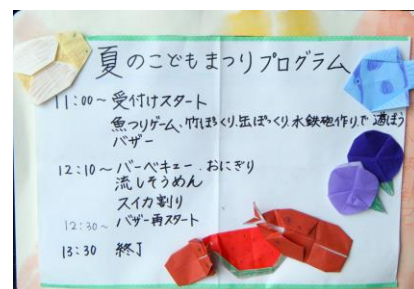 夏のこどもまつりプログラム
11:00〜 受付けスタート
魚つりゲーム、竹ぽっくり、缶ぽっくり、水鉄砲作りで遊ぼう
バザー
12:10〜 バーベキュー、おにぎり
流しそうめん
スイカ割り
12:30〜 バザー再スタート
13:30 終了